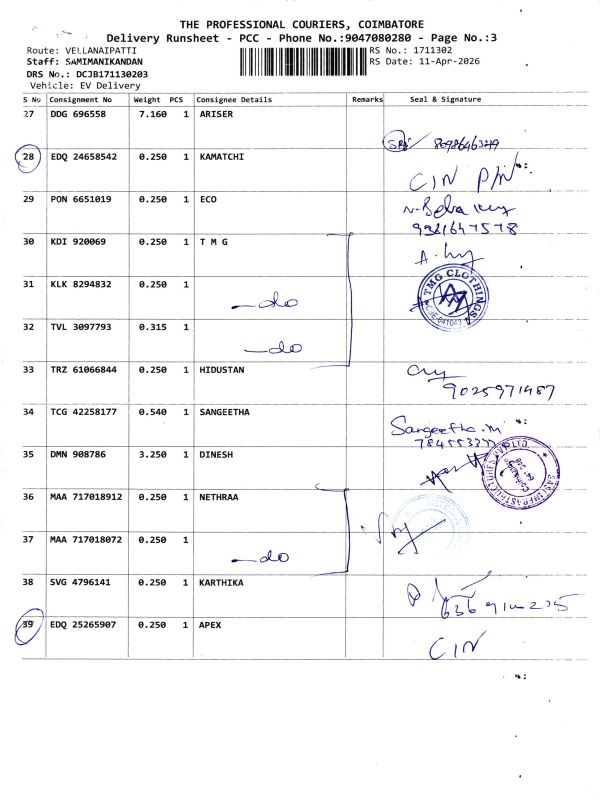 THE PROFESSIONAL COURIERS, COIMBATORE
Delivery Runsheet - PCC - Phone No.:9047080280 - Page No.:3
Route: VELLANAIPATTI
RS No.: 1711302
Staff: SAMIMANIKANDAN
RS Date: 11-Apr-2026
DRS No.: DCJB171130203
Vehicle: EV Delivery
S No Consignment No Weight PCS Consignee Details Remarks Seal & Signature
27 DDG 696558 7.160 1 ARISER
28 EDQ 24658542 0.250 1 KAMATCHI
CIN
29 PON 6651019 0.250 1 ECO
30 KDI 920069 0.250 1 T M G
31 KLK 8294832 0.250 1
-do
TMG CLOTHINGS
32 TVL 3097793 0.315 1
-do
33 TRZ 61066844 0.250 1 HIDUSTAN
9025971487
34 TCG 42258177 0.540 1 SANGEETHA
Sangeetha.M
35 DMN 908786 3.250 1 DINESH
36 MAA 717018912 0.250 1 NETHRAA
37 MAA 717018072 0.250 1
-do
38 SVG 4796141 0.250 1 KARTHIKA
39 EDQ 25265907 0.250 1 APEX
CIN